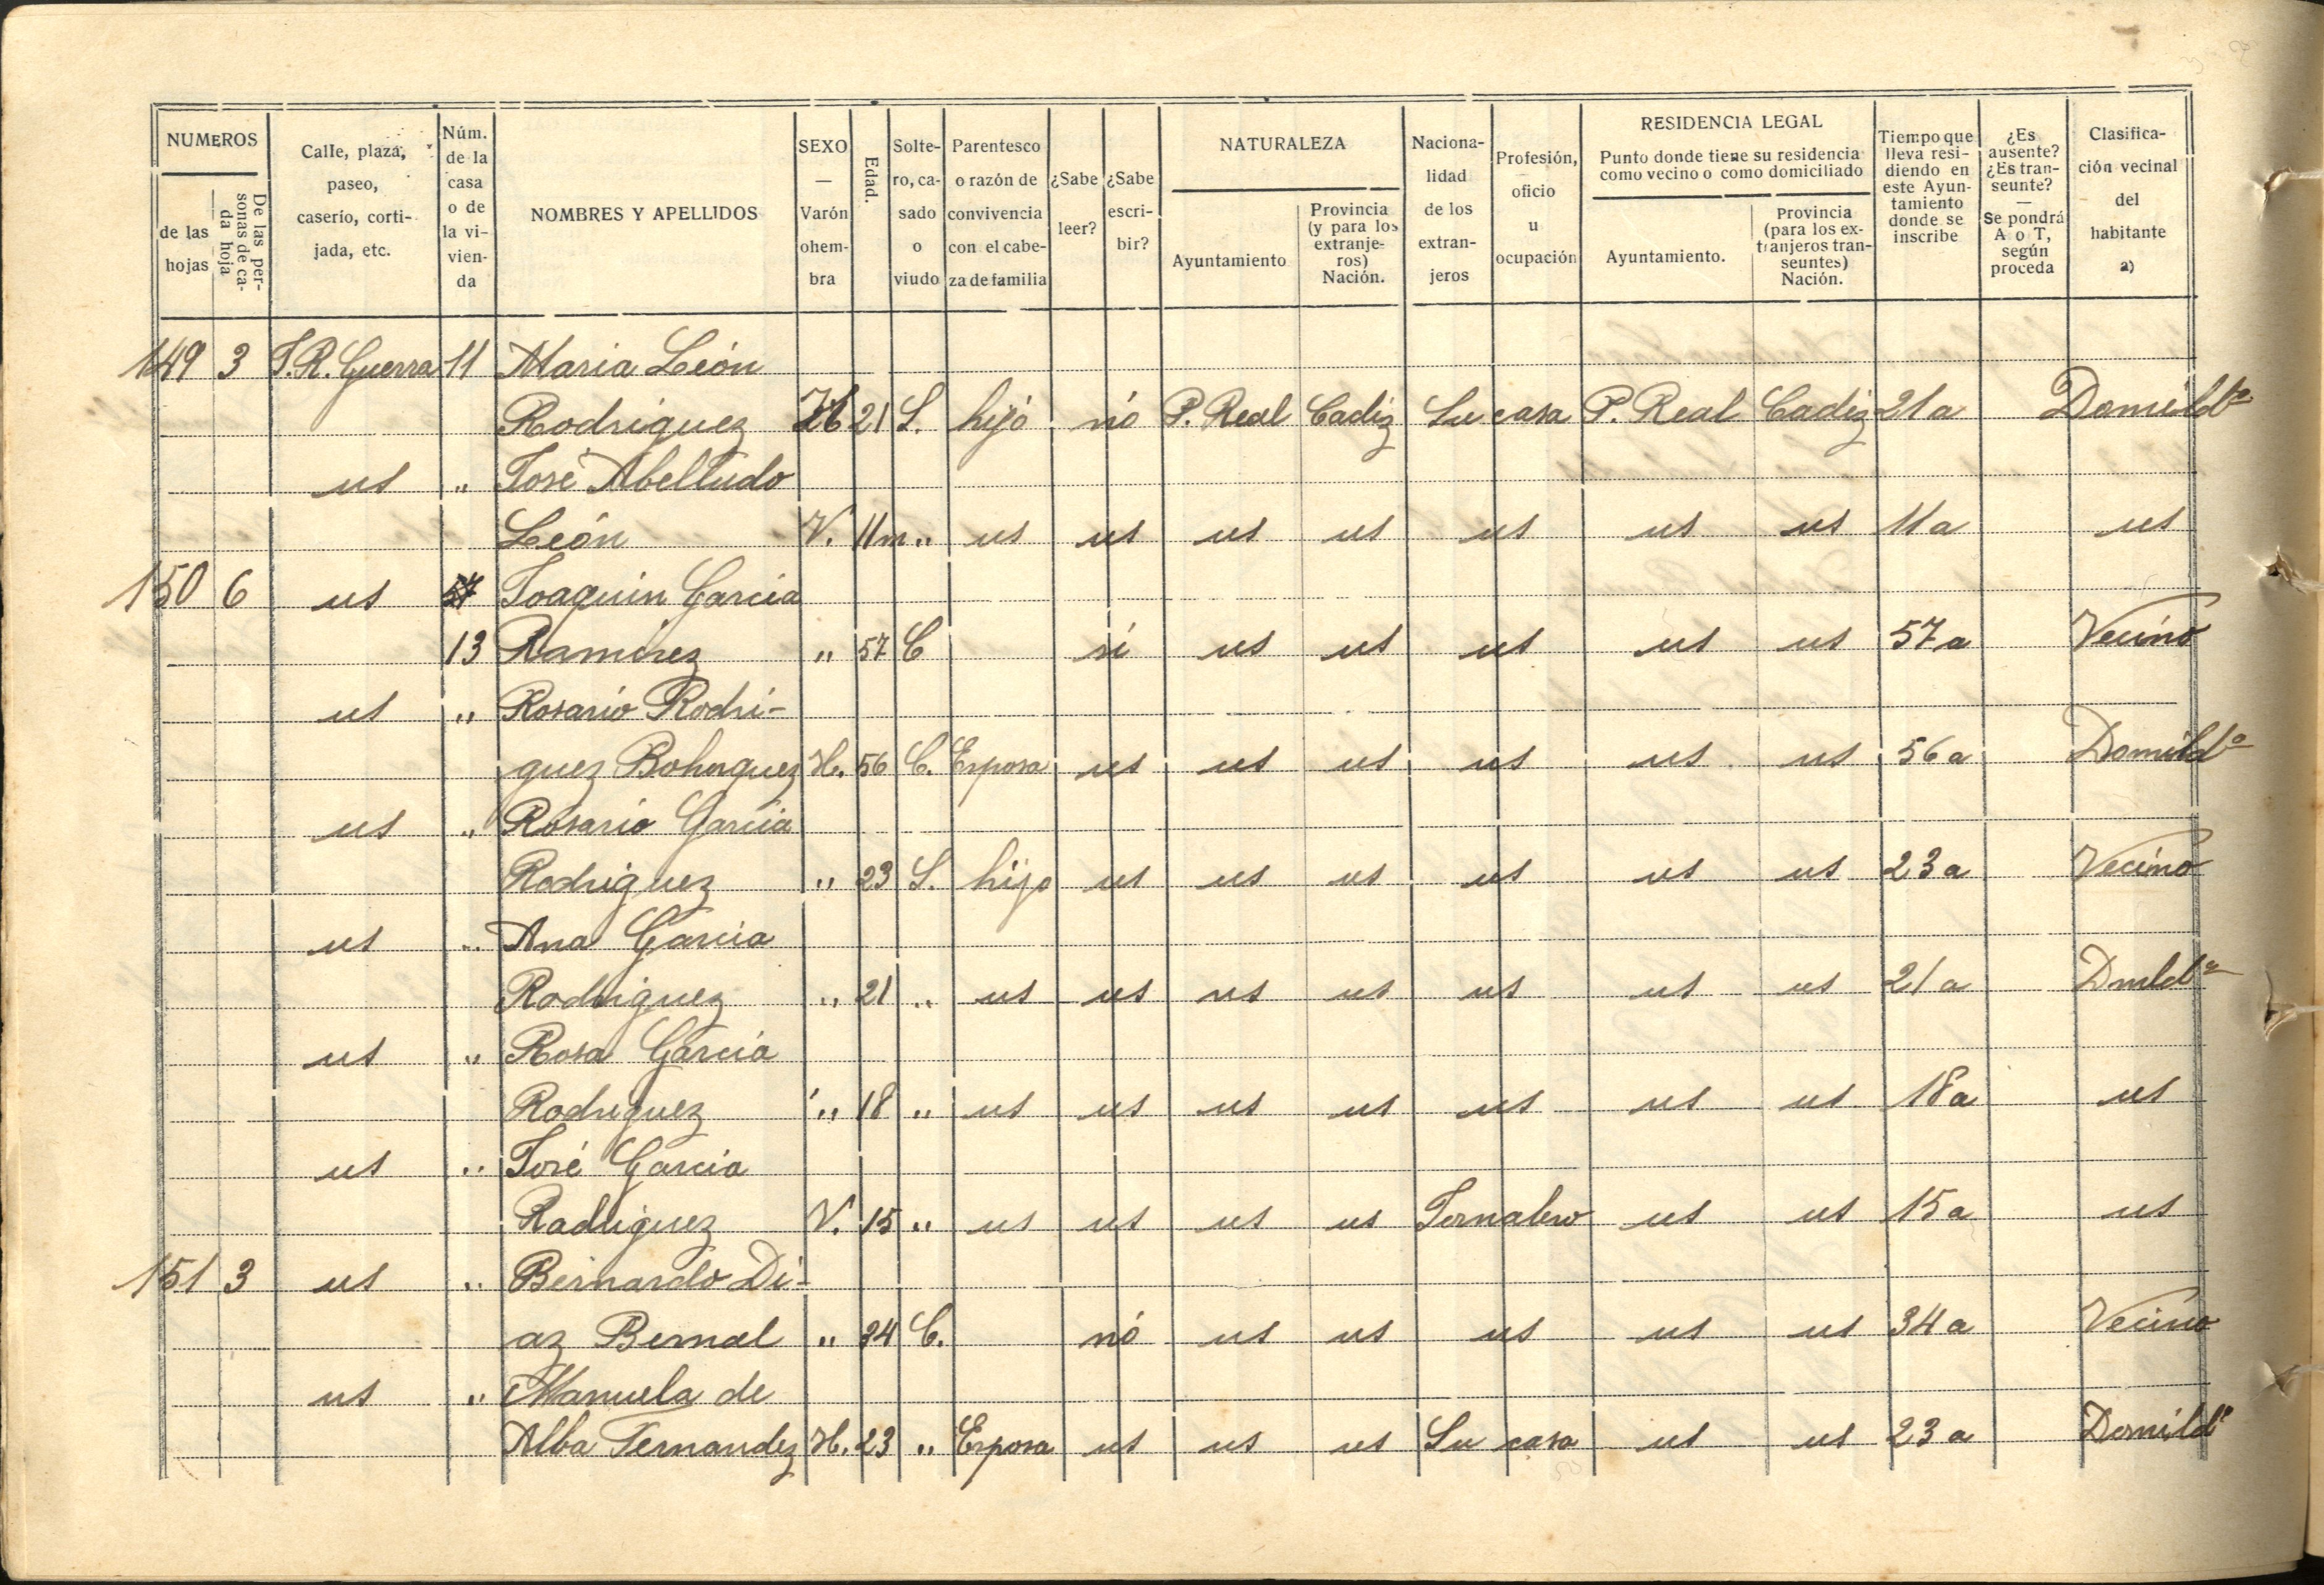 NUMEROS
de las hojas
De las personas de cada hoja
Calle, plaza, paseo, caserío, cortijada, etc.
Núm. de la casa o de la vivienda
NOMBRES Y APELLIDOS
SEXO — Varón o hembra
Edad.
Soltero, casado o viudo
Parentesco o razón de convivencia con el cabeza de familia
¿Sabe leer?
¿Sabe escribir?
NATURALEZA
Ayuntamiento
Provincia (y para los extranjeros) Nación.
Nacionalidad de los extranjeros
Profesión, oficio u ocupación
RESIDENCIA LEGAL
Punto donde tiene su residencia como vecino o como domiciliado
Ayuntamiento.
Provincia (para los extranjeros transeuntes) Nación.
Tiempo que lleva residiendo en este Ayuntamiento donde se inscribe
¿Es ausente? ¿Es transeunte? — Se pondrá A o T, según proceda
Clasificación vecinal del habitante a)
149 3 J.R. Guerra 11 Maria León
Rodriguez H 21 S. hijo no P. Real Cadiz Su casa P. Real Cadiz 21 a Domildº
us " José Abelludo
León V. 11 m " us us us us us us us 11 a us
150 6 us Joaquin Garcia
13 Ramirez " 57 C si us us us us us 57 a Vecino
us " Rosario Rodri-
guez Bohorquez H. 56 C. Esposa us us us us us us 56 a Domildº
us " Rosario Garcia
Rodriguez " 23 S. hijo us us us us us us 23 a Vecino
us " Ana Garcia
Rodriguez " 21 " us us us us us us us 21 a Dmldº
us " Rosa Garcia
Rodriguez " 18 " us us us us us us us 18 a us
us " José Garcia
Rodriguez V. 15 " us us us us Jornalero us us 15 a us
151 3 us " Bernardo Di-
az Bernal " 34 C. nó us us us us us 34 a Vecino
us " Manuela de
Alba Fernandez H. 23 " Esposa us us us Su casa us us 23 a Domildº